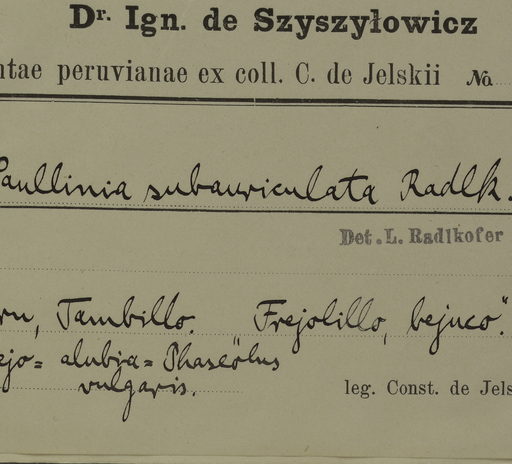 Dr. Ign. de Szyszyłowicz
ntae peruvianae ex coll. C. de Jelskii No
Paullinia subauriculata Radlk.
Det. L. Radlkofer
ru, Tambillo. Frejolillo, bejuco."
ejo= alubia= Phaseölus
vulgaris.
leg. Const. de Jels